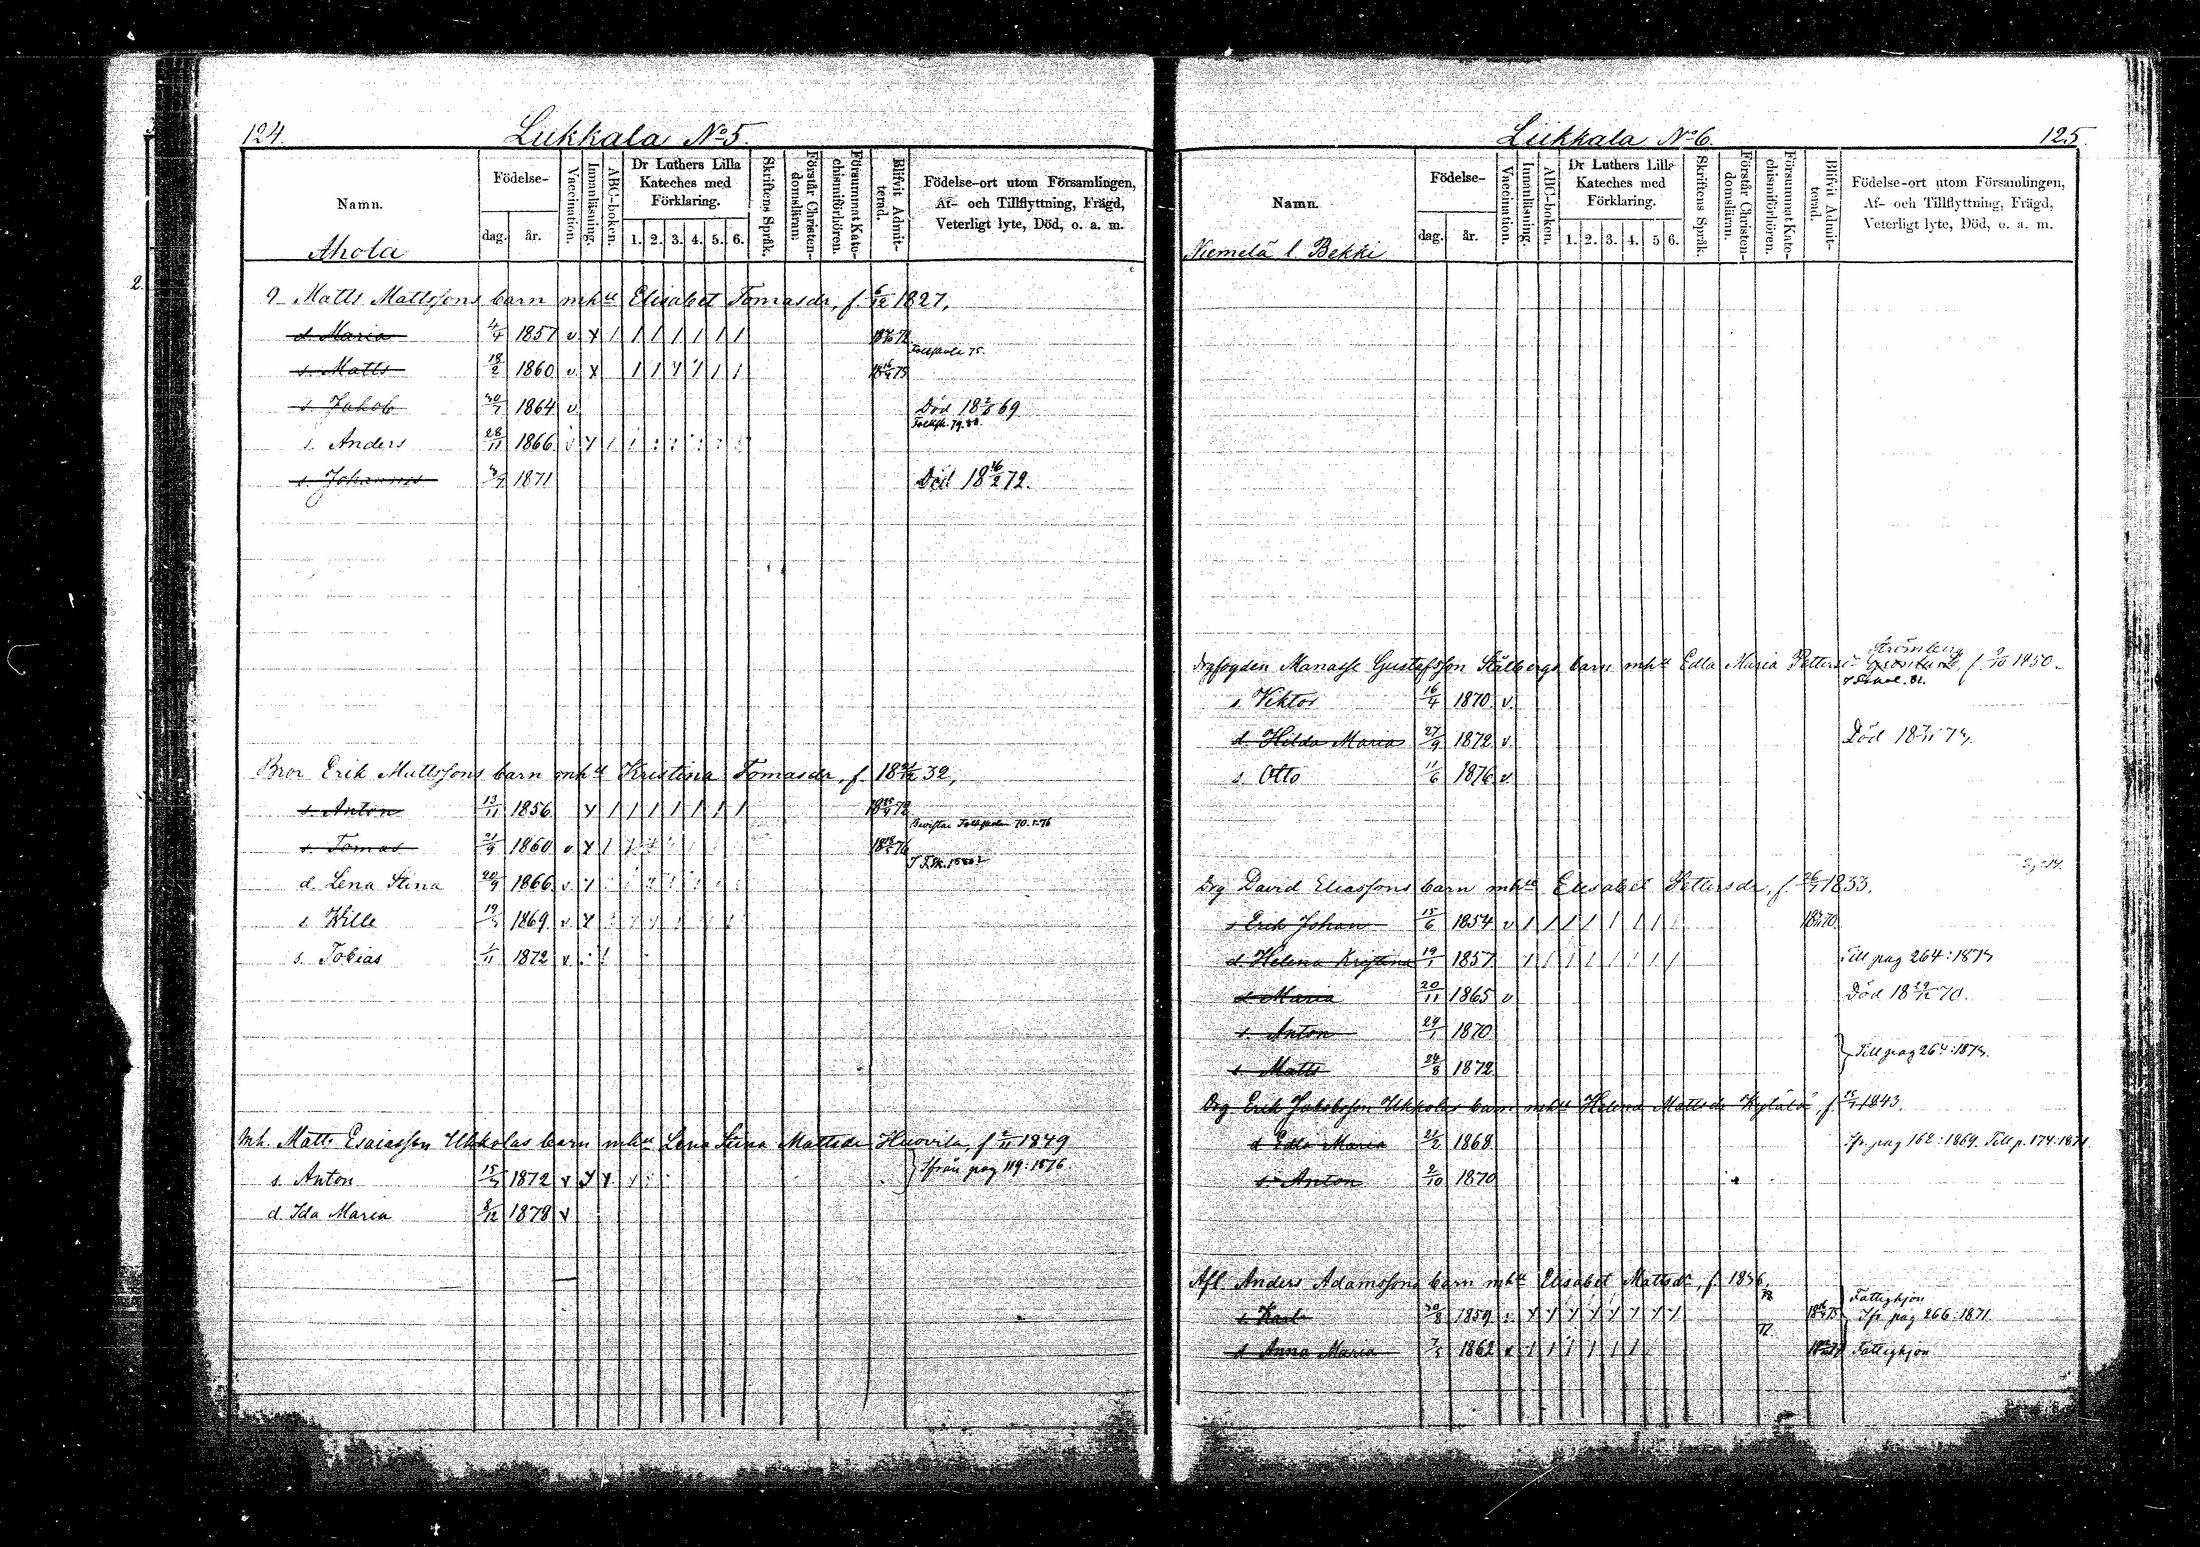 124. Lukkala No 5.
Namn. Födelse- dag. år. Vaccination. Innanläsning. ABC-boken. Dr Luthers Lilla Kateches med Förklaring. 1. 2. 3. 4. 5. 6. Skriftens Språk. Förstår Christendomsläran. Försummat Katechismiförhören. Blifvit Admitterad. Födelse-ort utom Församlingen, Af- och Tillflyttning, Frägd, Veterligt lyte, Död, o. a. m.
Ahola
2.
Matts Mattssons barn mhu Elisabet Tomasdr, f. 6/12 1827,
d. Maria 4/4 1857 v
Folkskola 75.
s. Matts 18/2 1860 v
s. Jakob 30/7 1864 v Död 69
Folksk. 79.80.
s. Anders 28/11 1866 v
s. Johannes 1871 Död 18 16/2 72.
Bror Erik Mattssons barn mhu Kristina Tomasdr, f 32,
s. Anton 13/11 1856
Bevistar Folkskolan 70.1.76
s. Tomas 21/9 1860 v
d. Lena Stina 20/9 1866 v
s. Wille 1869 v
s. Tobias 1/11 1872 v
Mh. Matts Esaiasson Ukkolas barn mhu Lena Stina Mattsdr Huovila, f 1849
s. Anton 1872 v Ifrån pag 119:1876
d Ida Maria 8/12 1878 v
Lukkala No 6. 125.
Namn. Födelse- dag. år. Vaccination. Innanläsning. ABC-boken. Dr Luthers Lilla Kateches med Förklaring. 1. 2. 3. 4. 5 6. Skriftens Språk. Förstår Christendomsläran. Försummat Katechismiförhören. Blifvit Admitterad. Födelse-ort utom Församlingen, Af- och Tillflyttning, Frägd, Veterligt lyte, Död, o. a. m.
Niemelä l. Bekki
Strömberg
Manasse Gustafsson Stålbergs barn mhu Edla Maria Petters f. 9/10 1850.
s. Viktor 16/4 1870 v.
d. Hilda Maria 27/9 1872 v Död
s. Otto 11/6 1876 v
Drg David Eliassons barn mhu Elisabet Pettersdr, f. 1833.
s Erik Johan 15/6 1854 v
d. Helena Kristina 19/1 1857 Till pag 264:1873
d Maria 20/11 1865 v Död 70.
s. Anton 24/1 1870
s. Matts 24/8 1872 Till pag 264:1873.
Drg Erik Jakobsson Ukkolas barn mhu Helena Mattsdr Kylälä, f. 1843.
d Edla Maria 21/2 1868 Ifr. pag 162:1869, Till p. 174:1871
s. Anton 2/10 1870
Afl Anders Adamssons barn mhu Elisabet Mattsdr, f. 1836.
s Karl 30/8 1859 Fattighjon Ifr pag 266:1871.
d Anna Maria 1862 Fattighjon